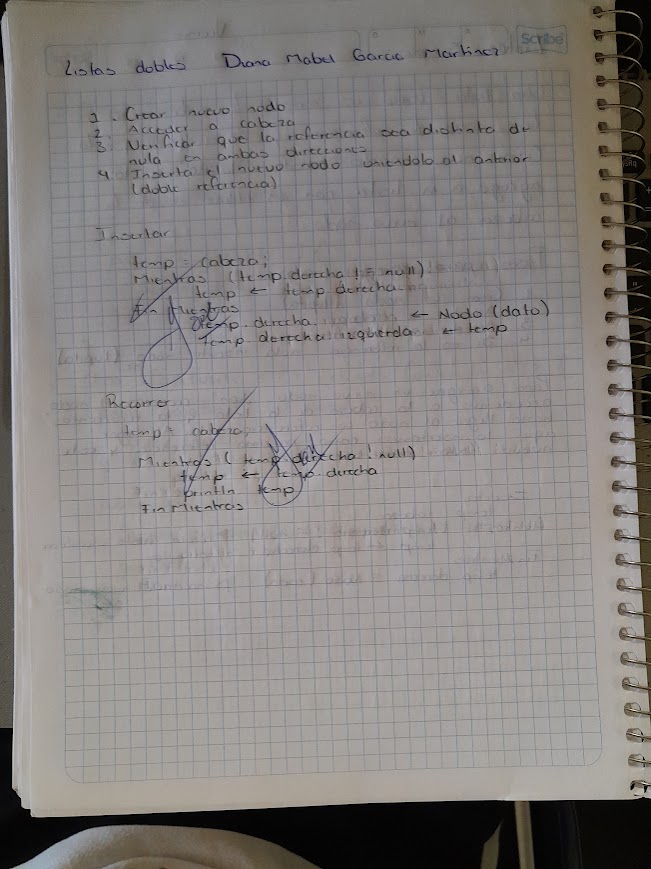 Scribe
Listas dobles Diana Mabel Garcia Martinez
1. Crear nuevo nodo
2. Acceder a cabeza
3. Verificar que la referencia sea distinta de
nula en ambas direcciones
4. Inserta el nuevo nodo uniendolo al anterior
(doble referencia)
Insertar
temp = cabeza;
Mientras (temp.derecha != null)
temp ← temp.derecha
Fin Mientras
temp.derecha ← Nodo (dato)
Temp.derecha.izquierda ← temp
Recorrer
temp = cabeza;
Mientras (temp.derecha ! null)
temp ← temp.derecha
println temp
Fin Mientras